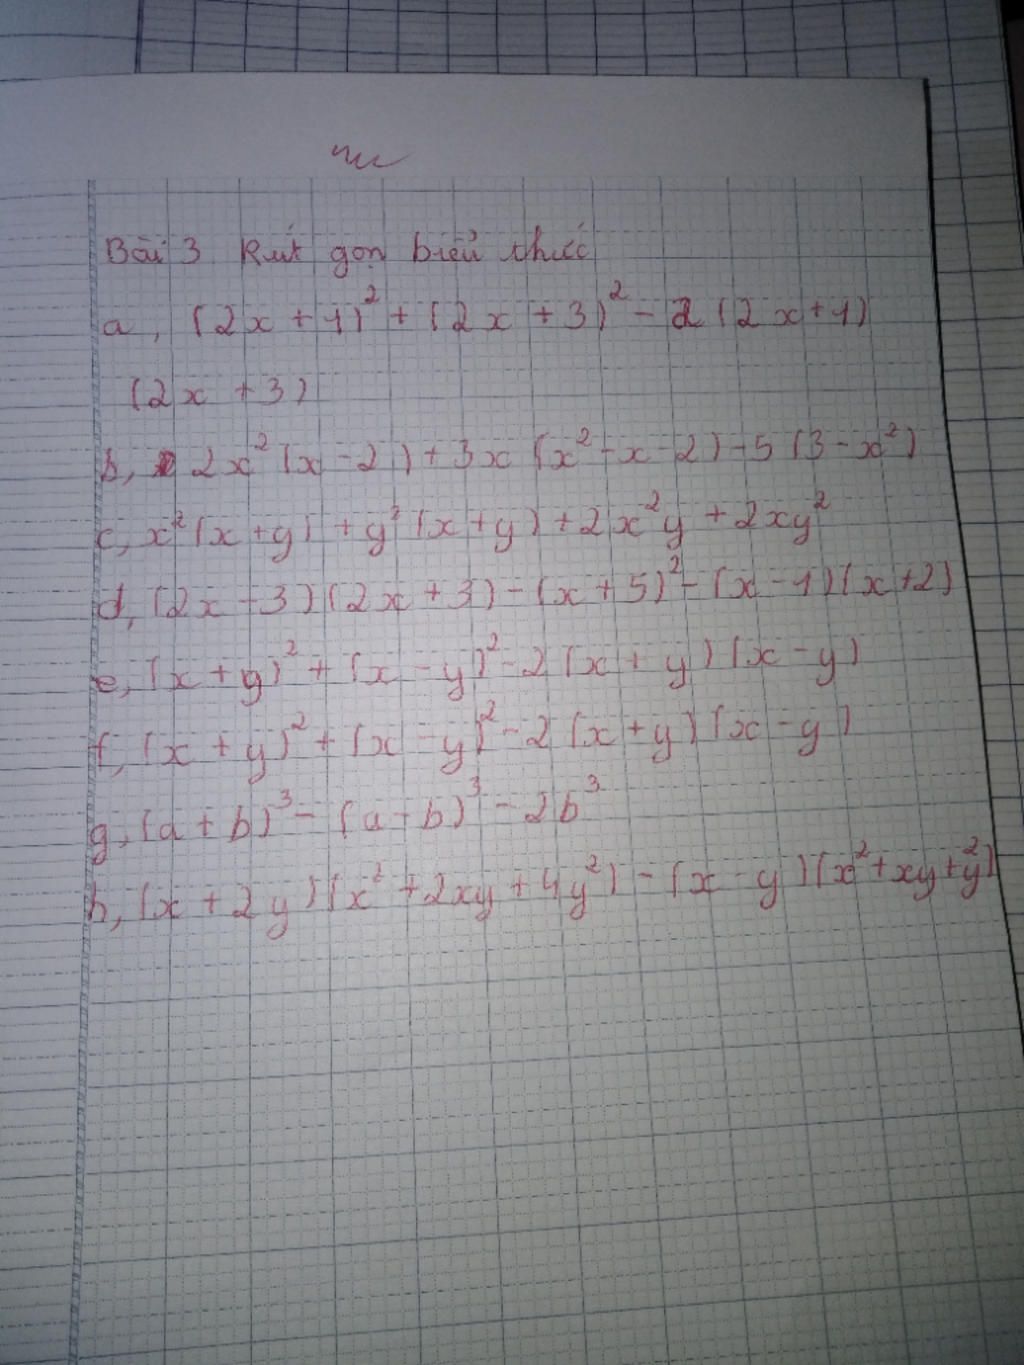 Bài 3 Rút gọn biểu thức
a, (2x + 1)² + (2x + 3)² - 2 (2x + 1)
(2x + 3)
b, 2x² (x - 2) + 3x (x² - x - 2) - 5 (3 - x²)
c, x² (x + y) + y² (x + y) + 2x²y + 2xy²
d, (2x - 3) (2x + 3) - (x + 5)² - (x - 1) (x + 2)
e, (x + y)² + (x - y)² - 2 (x + y) (x - y)
f, (x + y)² + (x - y)² - 2 (x + y) (x - y)
g, (a + b)³ - (a - b)³ - 2b³
h, (x + 2y) (x² + 2xy + 4y²) - (x - y) (x² + xy + y²)